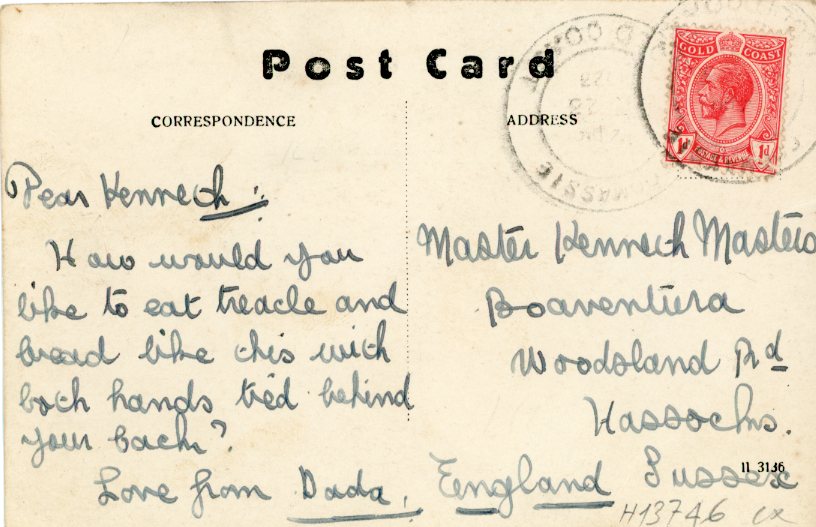 Post Card
CORRESPONDENCE
ADDRESS
GOLD COAST
1d 1d
POSTAGE & REVENUE
Dear Kenneth:
How would you
like to eat treacle and
bread like this with
both hands tied behind
your back?
Love from Dada,
Master Kenneth Masters
Boaventura
Woodsland Rd
Hassocks.
England Sussex
11 3136
H13746 ex